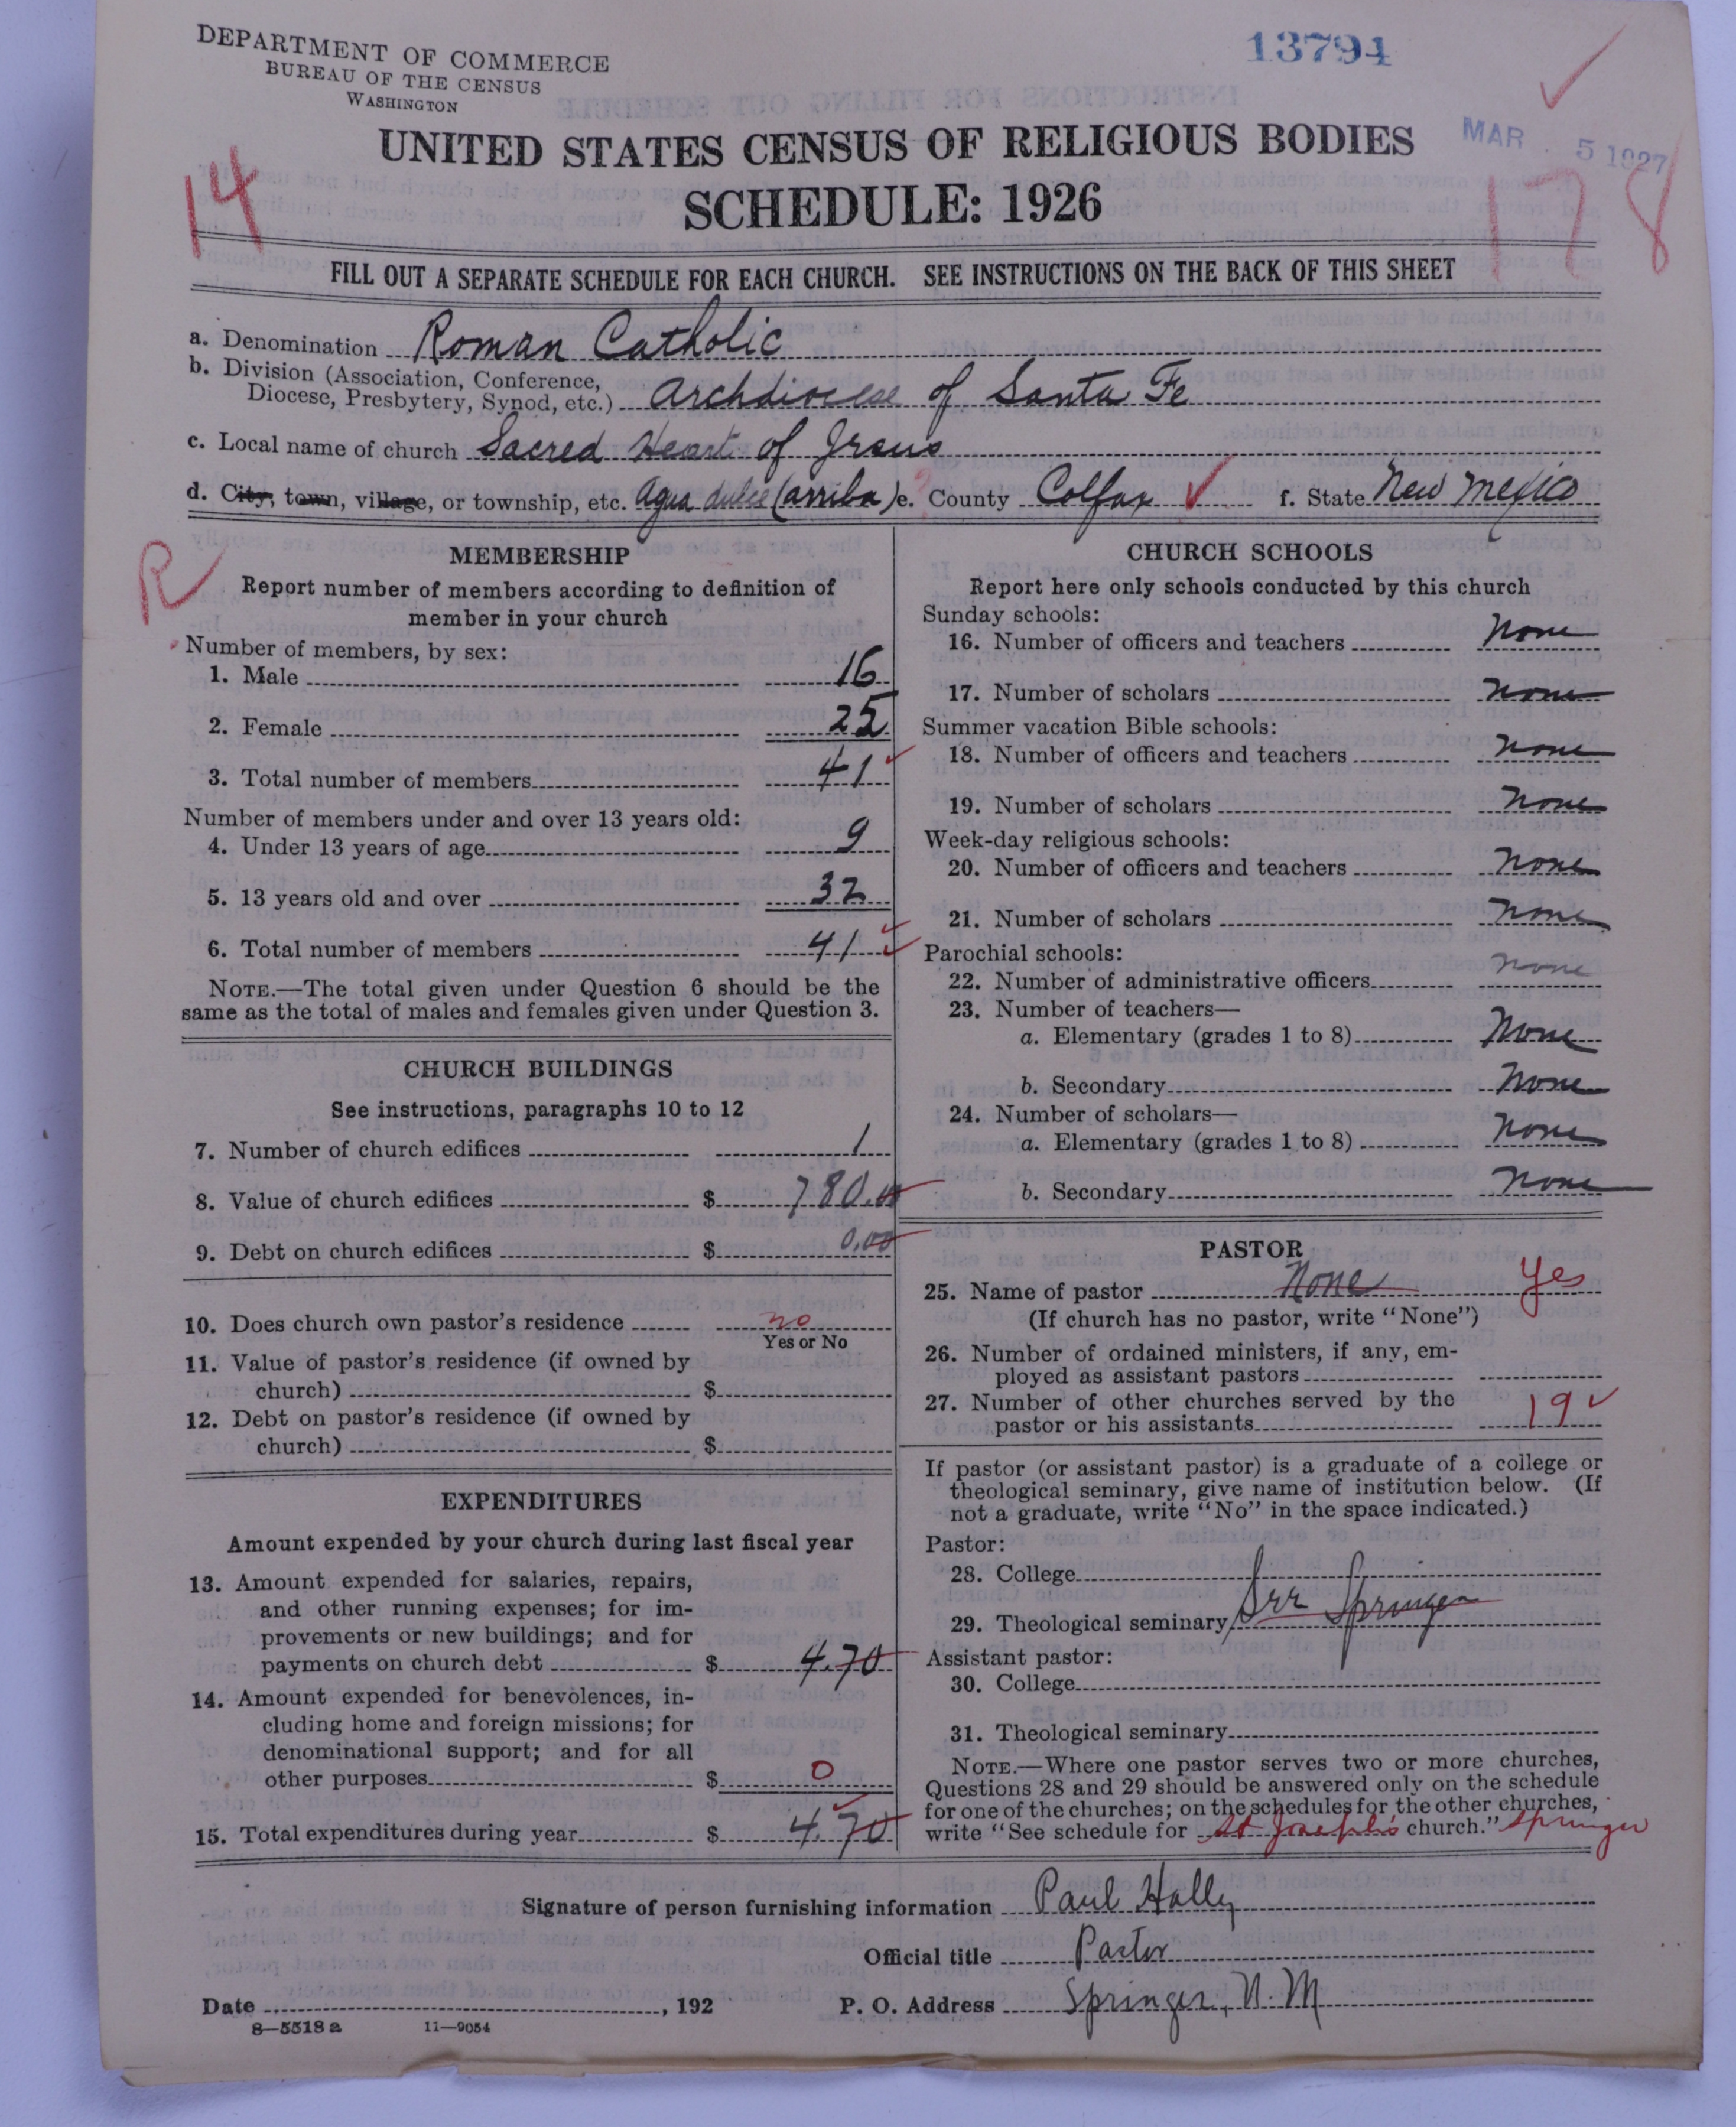 DEPARTMENT OF COMMERCE
BUREAU OF THE CENSUS
WASHINGTON
13794
MAR . 5 1927
UNITED STATES CENSUS OF RELIGIOUS BODIES
SCHEDULE: 1926
14
178
FILL OUT A SEPARATE SCHEDULE FOR EACH CHURCH. SEE INSTRUCTIONS ON THE BACK OF THIS SHEET
a. Denomination Roman Catholic
b. Division (Association, Conference,
Diocese, Presbytery, Synod, etc.) Archdiocese of Santa Fe
c. Local name of church Sacred Heart of Jesus
d. City, town, village, or township, etc. Agua dulce (arriba) e. County Colfax f. State New Mexico
R
MEMBERSHIP
Report number of members according to definition of
member in your church
Number of members, by sex:
1. Male 16
2. Female 25
3. Total number of members 41
Number of members under and over 13 years old:
4. Under 13 years of age 9
5. 13 years old and over 32
6. Total number of members 41
NOTE.—The total given under Question 6 should be the
same as the total of males and females given under Question 3.
CHURCH BUILDINGS
See instructions, paragraphs 10 to 12
7. Number of church edifices 1
8. Value of church edifices $ 780.00
9. Debt on church edifices $ 0.00
10. Does church own pastor's residence no
Yes or No
11. Value of pastor's residence (if owned by
church) $
12. Debt on pastor's residence (if owned by
church) $
EXPENDITURES
Amount expended by your church during last fiscal year
13. Amount expended for salaries, repairs,
and other running expenses; for im-
provements or new buildings; and for
payments on church debt $ 4.70
14. Amount expended for benevolences, in-
cluding home and foreign missions; for
denominational support; and for all
other purposes $ 0
15. Total expenditures during year $ 4.70
CHURCH SCHOOLS
Report here only schools conducted by this church
Sunday schools:
16. Number of officers and teachers None
17. Number of scholars None
Summer vacation Bible schools:
18. Number of officers and teachers None
19. Number of scholars None
Week-day religious schools:
20. Number of officers and teachers None
21. Number of scholars None
Parochial schools:
22. Number of administrative officers None
23. Number of teachers—
a. Elementary (grades 1 to 8) None
b. Secondary None
24. Number of scholars—
a. Elementary (grades 1 to 8) None
b. Secondary None
PASTOR
25. Name of pastor None yes
(If church has no pastor, write "None")
26. Number of ordained ministers, if any, em-
ployed as assistant pastors
27. Number of other churches served by the
pastor or his assistants 19
If pastor (or assistant pastor) is a graduate of a college or
theological seminary, give name of institution below. (If
not a graduate, write "No" in the space indicated.)
Pastor:
28. College
29. Theological seminary Springer
Assistant pastor:
30. College
31. Theological seminary
NOTE.—Where one pastor serves two or more churches,
Questions 28 and 29 should be answered only on the schedule
for one of the churches; on the schedules for the other churches,
write "See schedule for St Joseph's church." Springer
Signature of person furnishing information Paul Hally
Official title Pastor
Date , 192 P. O. Address Springer, N. M
8—5518 a 11—9054